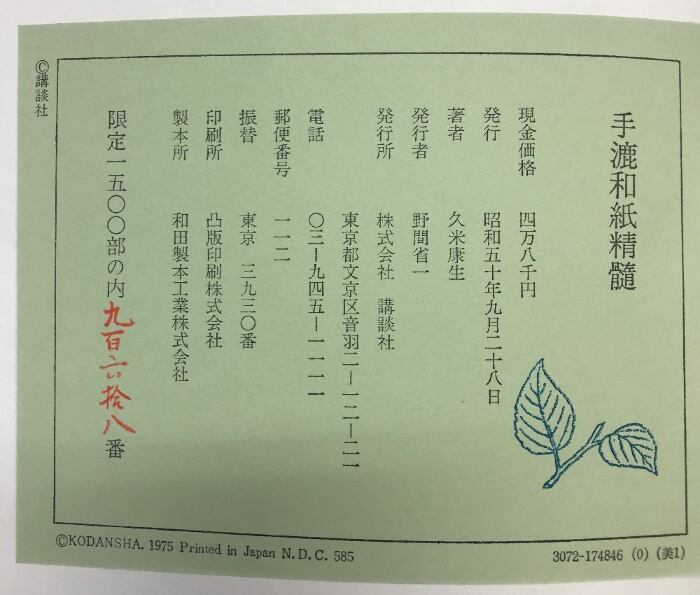 手漉和紙精髓
現金価格 四万八千円
発行 昭和五十年九月二十八日
著者 久米康生
発行者 野間省一
発行所 株式会社 講談社
東京都文京区音羽二ー一二ー二一
電話 〇三ー九四五ー一一一一
郵便番号 一一二
振替 東京 三九三〇番
印刷所 凸版印刷株式会社
製本所 和田製本工業株式会社
限定一五〇〇部の内九百六拾八番
©講談社
©KODANSHA. 1975 Printed in Japan N.D.C. 585
3072-174846 (0) (美1)